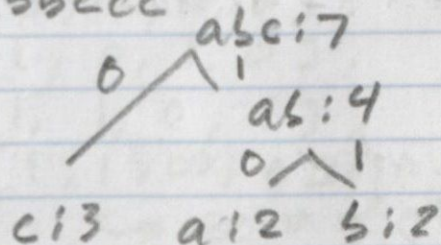 bbccc
abc:7
0 1
ab:4
0 1
c:3 a:2 b:2